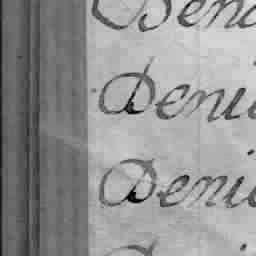 Bend
Deni
Deni